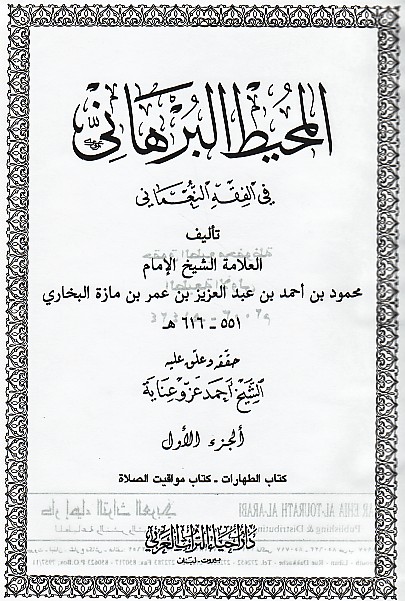 المحيط البرهاني
في الفقه النعماني
تأليف
العلامة الشيخ الإمام
محمود بن أحمد بن عبد العزيز بن عمر بن مازة البخاري
٥٥١ - ٦١٦ هـ
حققه وعلق عليه
الشيخ أحمد عزو عناية
الجزء الأول
كتاب الطهارات - كتاب مواقيت الصلاة
دار إحياء التراث العربي
بيروت - لبنان